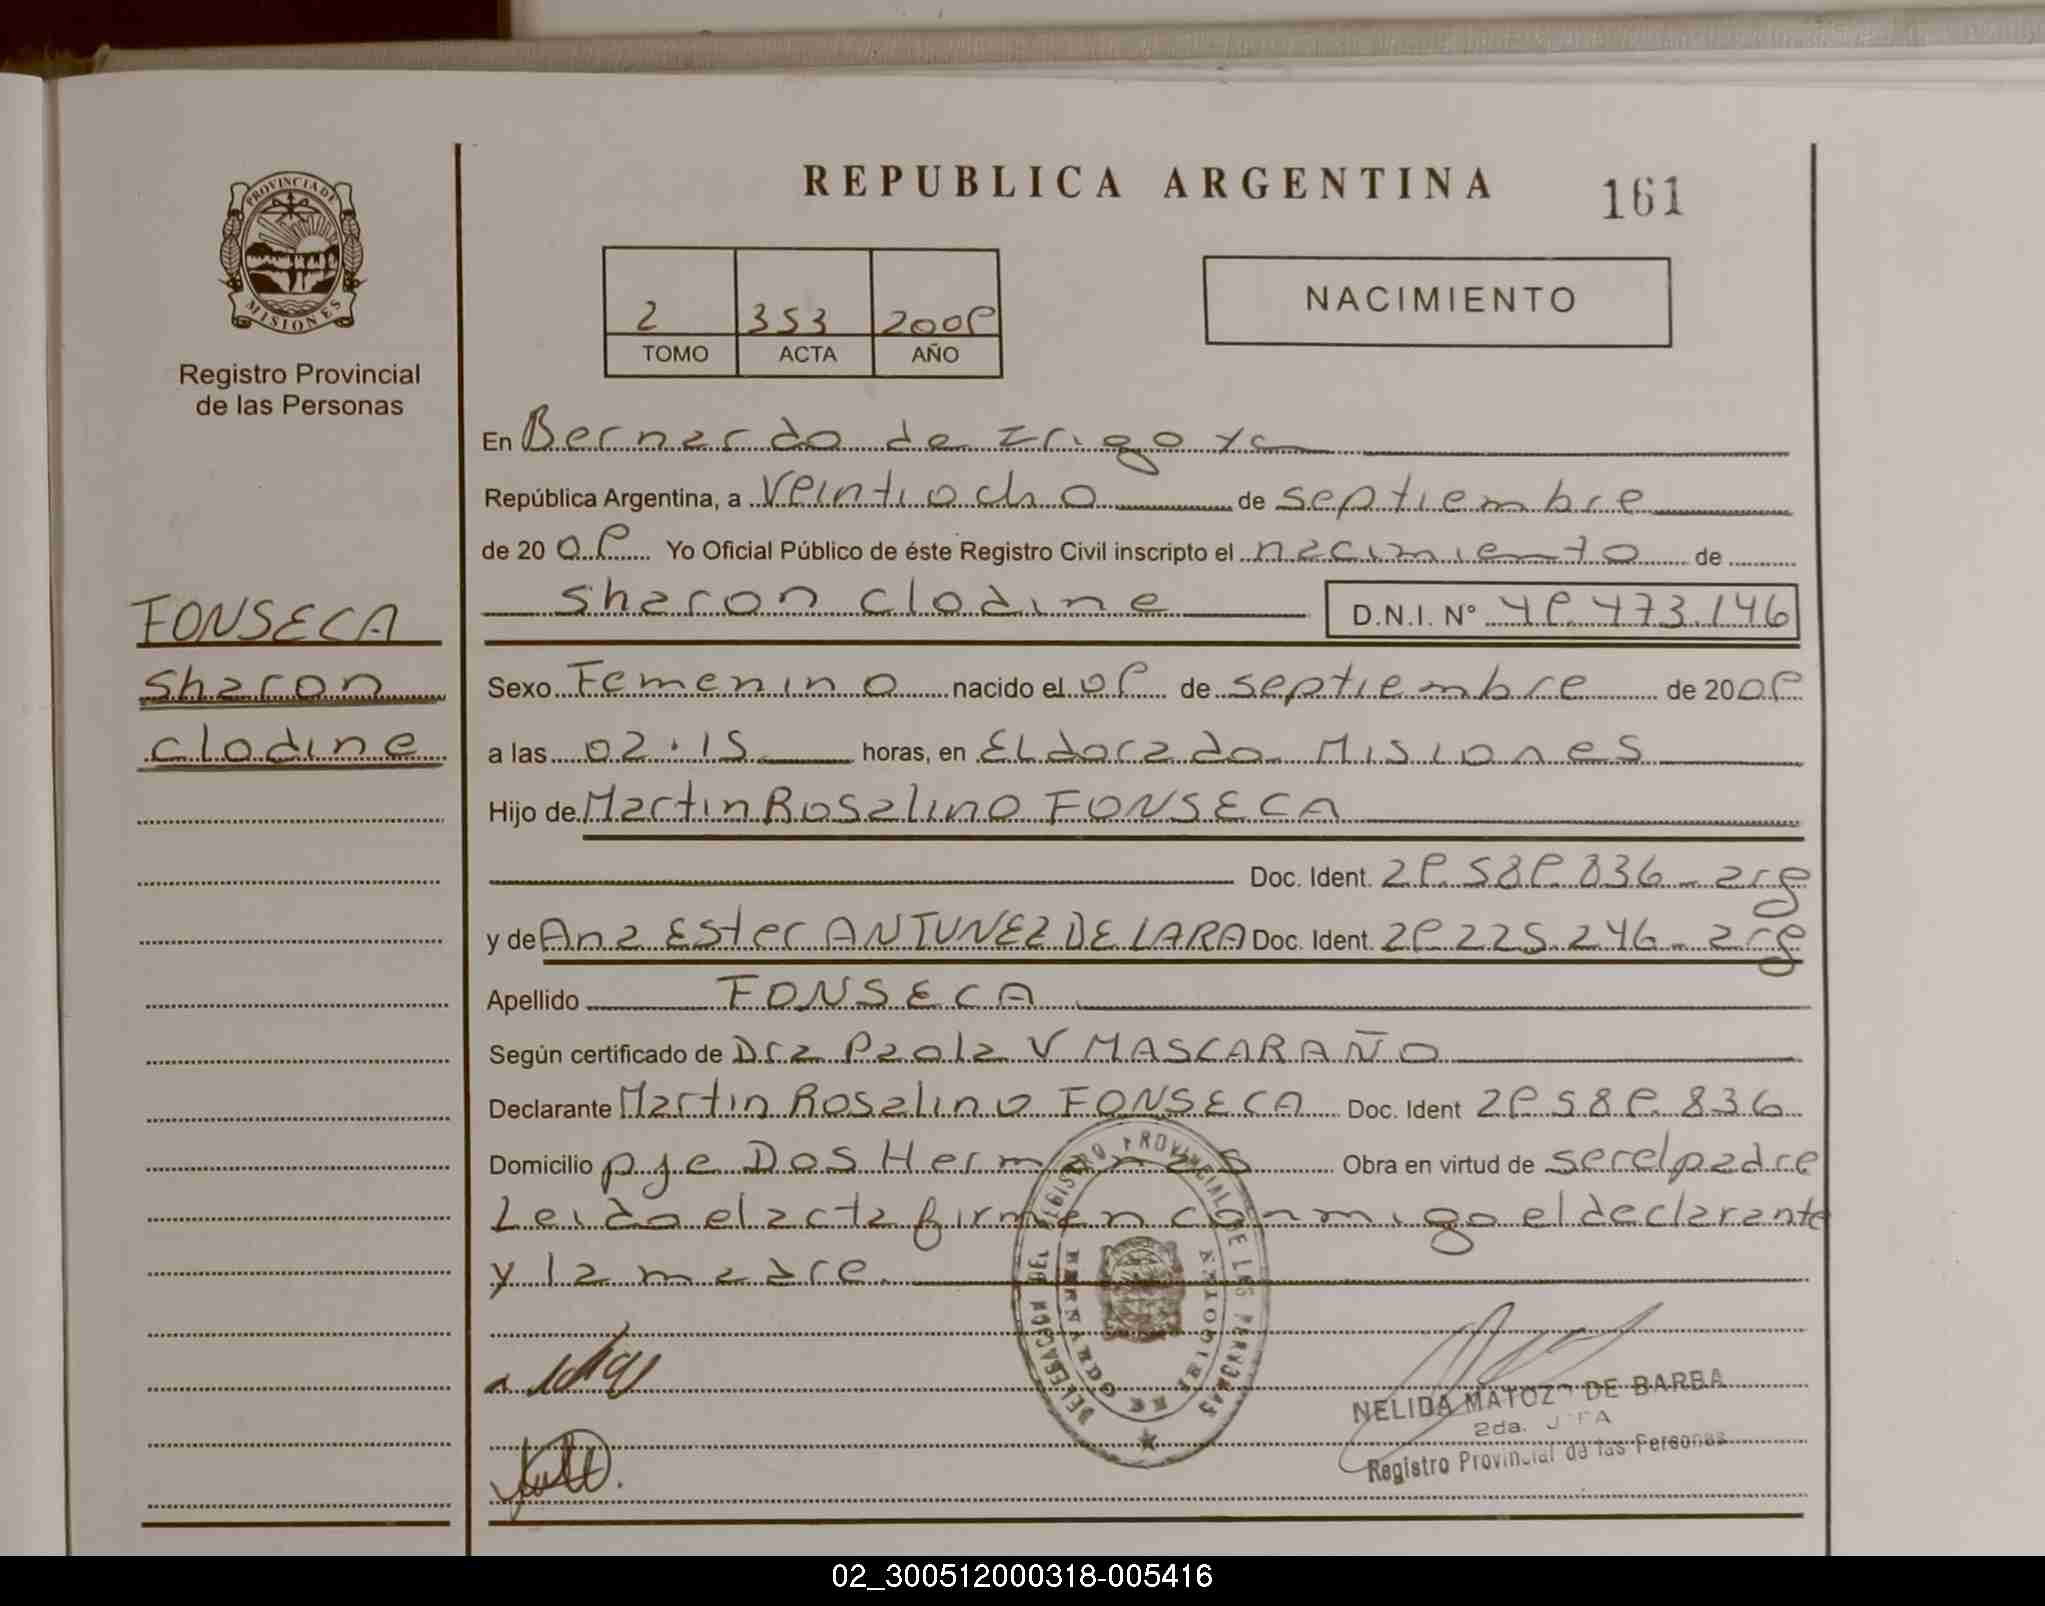 PROVINCIA DE
MISIONES
Registro Provincial
de las Personas
REPUBLICA ARGENTINA
161
2 353 2009
TOMO ACTA AÑO
NACIMIENTO
En Bernardo de Irigoyen
República Argentina, a Veintiocho de septiembre
de 20 09 Yo Oficial Público de éste Registro Civil inscripto el nacimiento de
Sharon Clodine D.N.I. N° 49.473.146
FONSECA
Sharon
Clodine
Sexo Femenino nacido el 09 de septiembre de 2009
a las 02:15 horas, en Eldorado Misiones
Hijo de Martin Rosalino FONSECA
Doc. Ident. 29.589.836 - arg
y de Ana Ester ANTUNEZ DE LARA Doc. Ident. 29.225.246 - arg
Apellido FONSECA
Según certificado de Dra Paola V MASCARAÑO
Declarante Martin Rosalino FONSECA Doc. Ident 29.589.836
Domicilio pje Dos Hermanas Obra en virtud de ser el padre
Leido el acta firman conmigo el declarante
y la madre.
DELEGACION DEL REGISTRO PROVINCIAL DE LAS PERSONAS
NELIDA MATOZO DE BARBA
2da. JEFA
Registro Provincial de las Personas
02_300512000318-005416